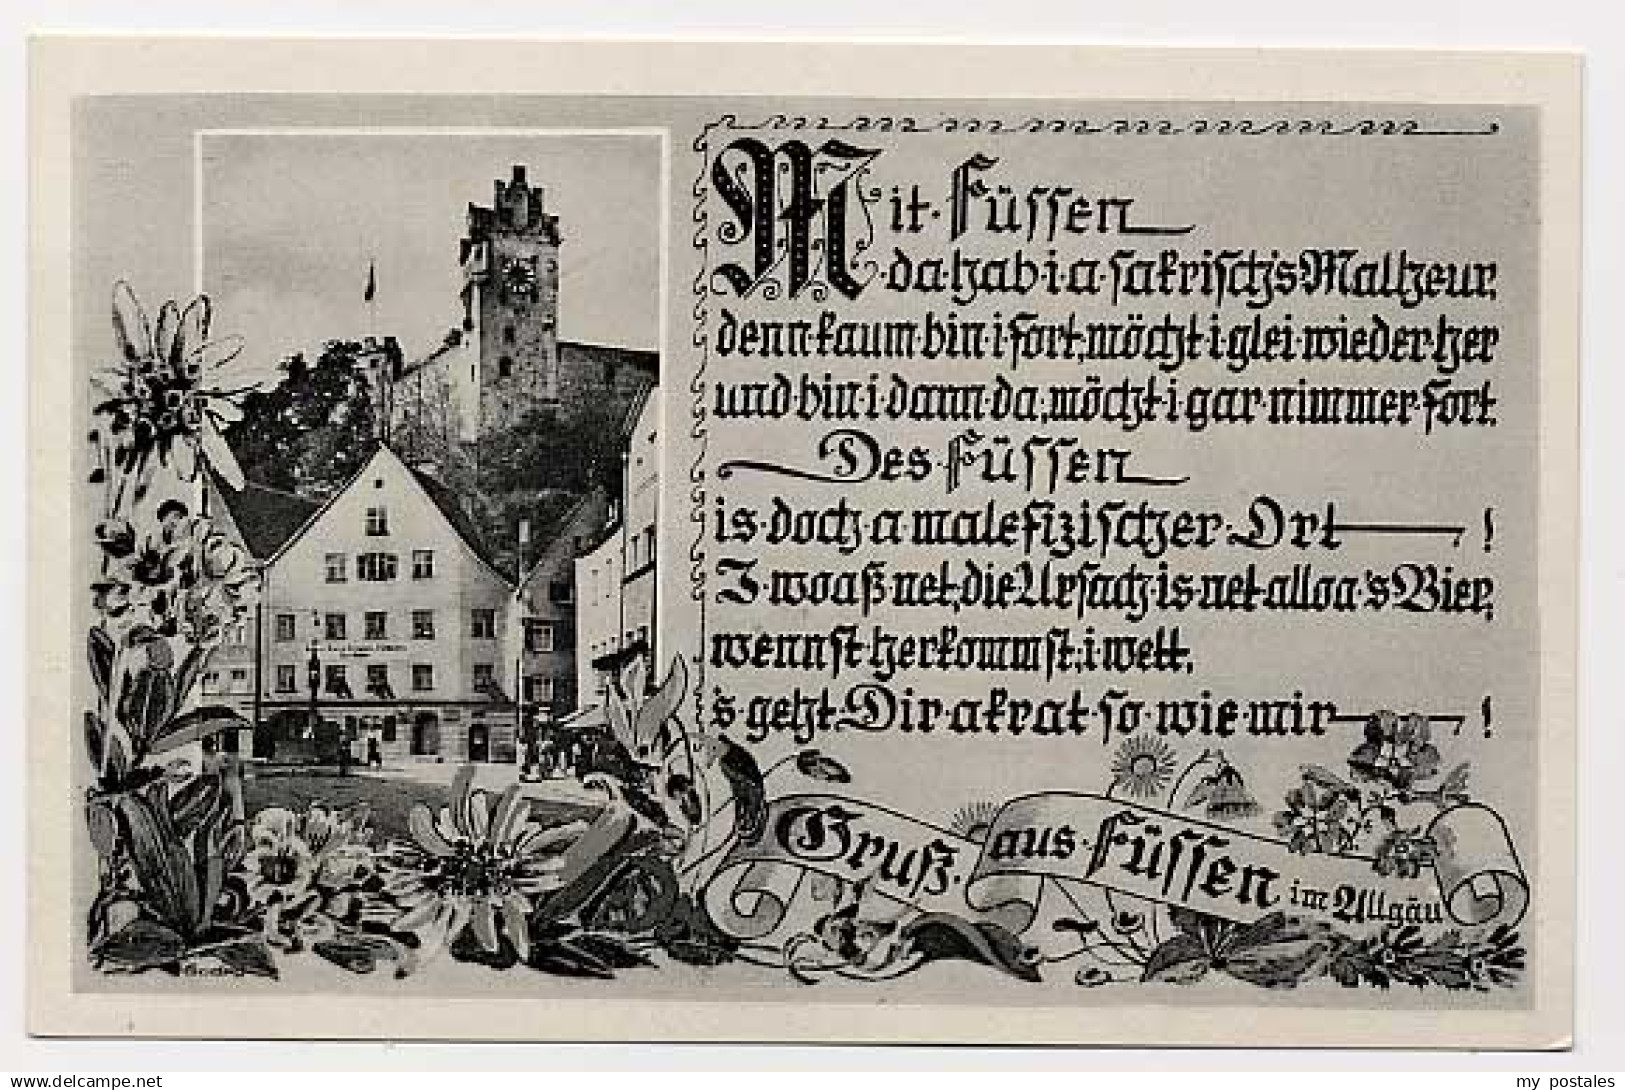 Mit Füssen
da hab i a sakrisch's Malheur,
denn kaum bin i fort, möcht i glei wieder her
und bin i dann da, möcht i gar nimmer fort.
Des Füssen
is doch a malefizischer Ort — !
I woaß net, die Ursach is net alloa 's Bier,
wennst herkommst, i wett,
's geht Dir akrat so wie mir — !
Gruß aus Füssen im Allgäu
my postales